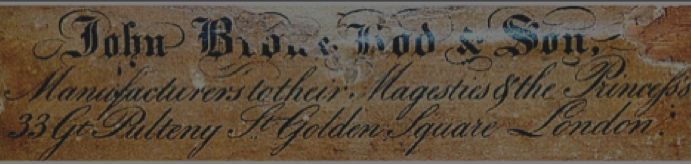 John Broad & Son,
Manufacturers to their Magesties & the Princess
33 Gt Pulteny St Golden Square London.